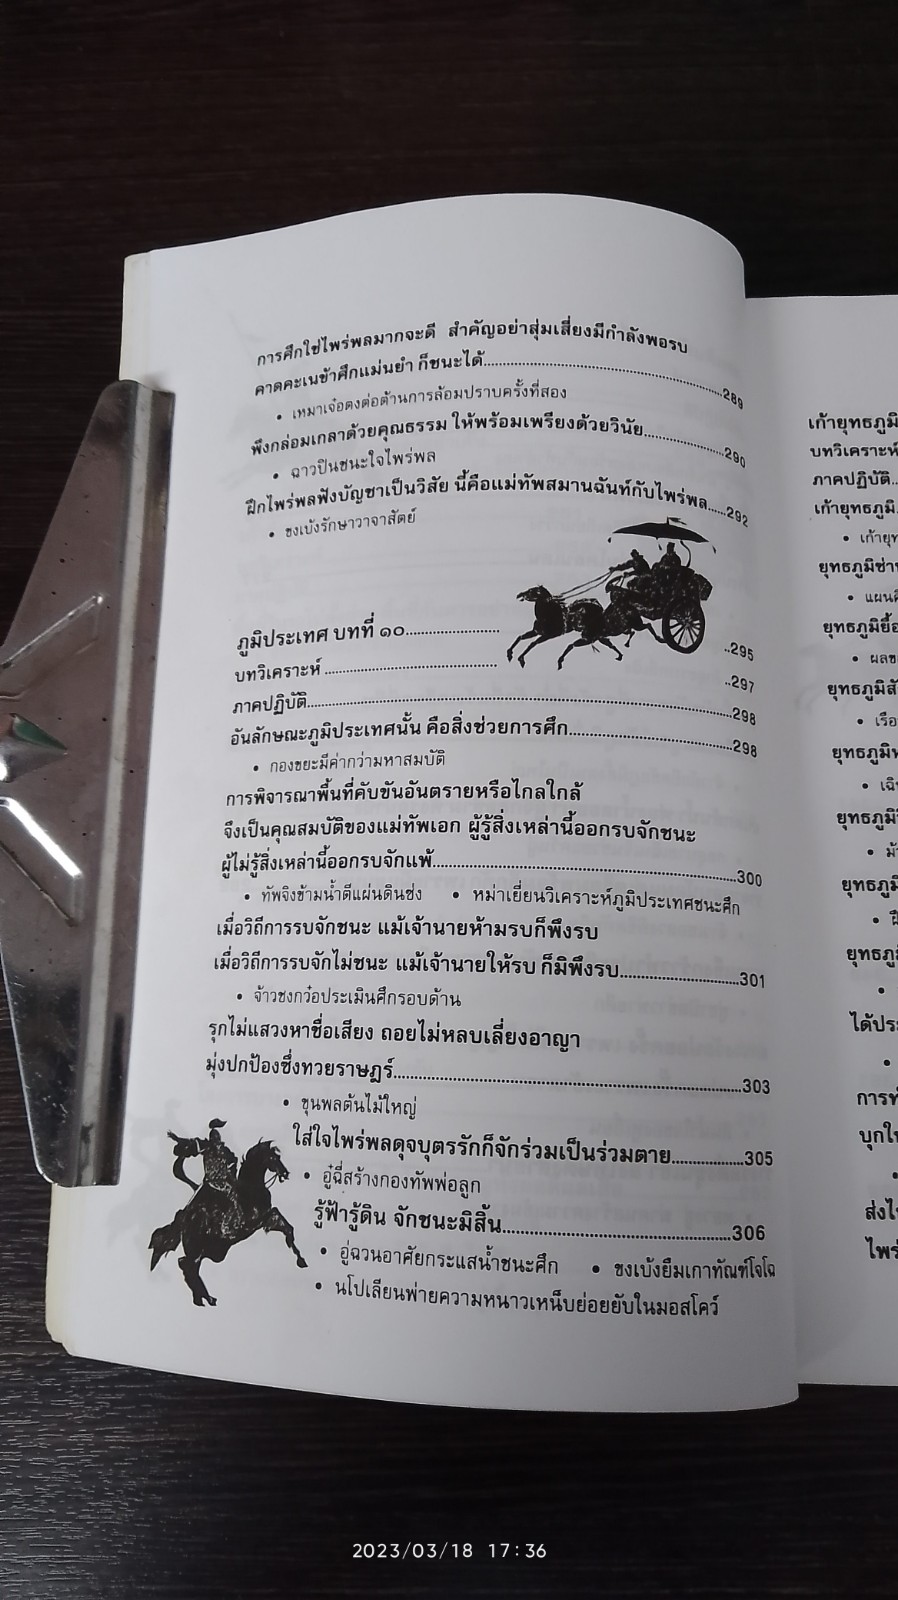 การศึกใช่ไพร่พลมากจะดี สำคัญอย่าสุ่มเสี่ยงมีกำลังพอรบ
คาดคะเนข้าศึกแม่นยำ ก็ชนะได้...289
• เหมาเจ๋อตงต่อต้านการล้อมปราบครั้งที่สอง
พึงกล่อมเกลาด้วยคุณธรรม ให้พร้อมเพรียงด้วยวินัย...290
• ฉาวปินชนะใจไพร่พล
ฝึกไพร่พลฟังบัญชาเป็นวิสัย นี้คือแม่ทัพสมานฉันท์กับไพร่พล...292
• ขงเบ้งรักษาวาจาสัตย์
ภูมิประเทศ บทที่ ๑๐...295
บทวิเคราะห์...297
ภาคปฏิบัติ...298
อันลักษณะภูมิประเทศนั้น คือสิ่งช่วยการศึก...298
• กองขยะมีค่ากว่ามหาสมบัติ
การพิจารณาพื้นที่คับขันอันตรายหรือไกลใกล้
จึงเป็นคุณสมบัติของแม่ทัพเอก ผู้รู้สิ่งเหล่านี้ออกรบจักชนะ
ผู้ไม่รู้สิ่งเหล่านี้ออกรบจักแพ้...300
• ทัพจิงข้ามน้ำตีแผ่นดินซ่ง • หม่าเยี่ยนวิเคราะห์ภูมิประเทศชนะศึก
เมื่อวิถีการรบจักชนะ แม้เจ้านายห้ามรบก็พึงรบ
เมื่อวิถีการรบจักไม่ชนะ แม้เจ้านายให้รบ ก็มิพึงรบ...301
• จ้าวชงกว๋อประเมินศึกรอบด้าน
รุกไม่แสวงหาชื่อเสียง ถอยไม่หลบเลี่ยงอาญา
มุ่งปกป้องซึ่งทวยราษฎร์...303
• ขุนพลต้นไม้ใหญ่
ใส่ใจไพร่พลดุจบุตรรักก็จักร่วมเป็นร่วมตาย...305
• อู๋ฉี่สร้างกองทัพพ่อลูก
รู้ฟ้ารู้ดิน จักชนะมิสิ้น...306
• อู่ฉวนอาศัยกระแสน้ำชนะศึก • ขงเบ้งยืมเกาทัณฑ์โจโฉ
• นโปเลียนพ่ายความหนาวเหน็บย่อยยับในมอสโคว์
เก้ายุทธภูมิ
บทวิเคราะห์
ภาคปฏิบัติ..
เก้ายุทธภูมิ
• เก้ายุท
ยุทธภูมิซ่าน
• แผน
ยุทธภูมิยื้อ
• ผล
ยุทธภูมิ
• เรือ
ยุทธภูมิ
• เฉิ
ยุทธภูมิ
•
ยุทธภูมิ
•
ยุทธภูมิ
•
ได้ประ
•
การ
บุกใน
•
ส่งไ
ไพร่
2023/03/18 17:36